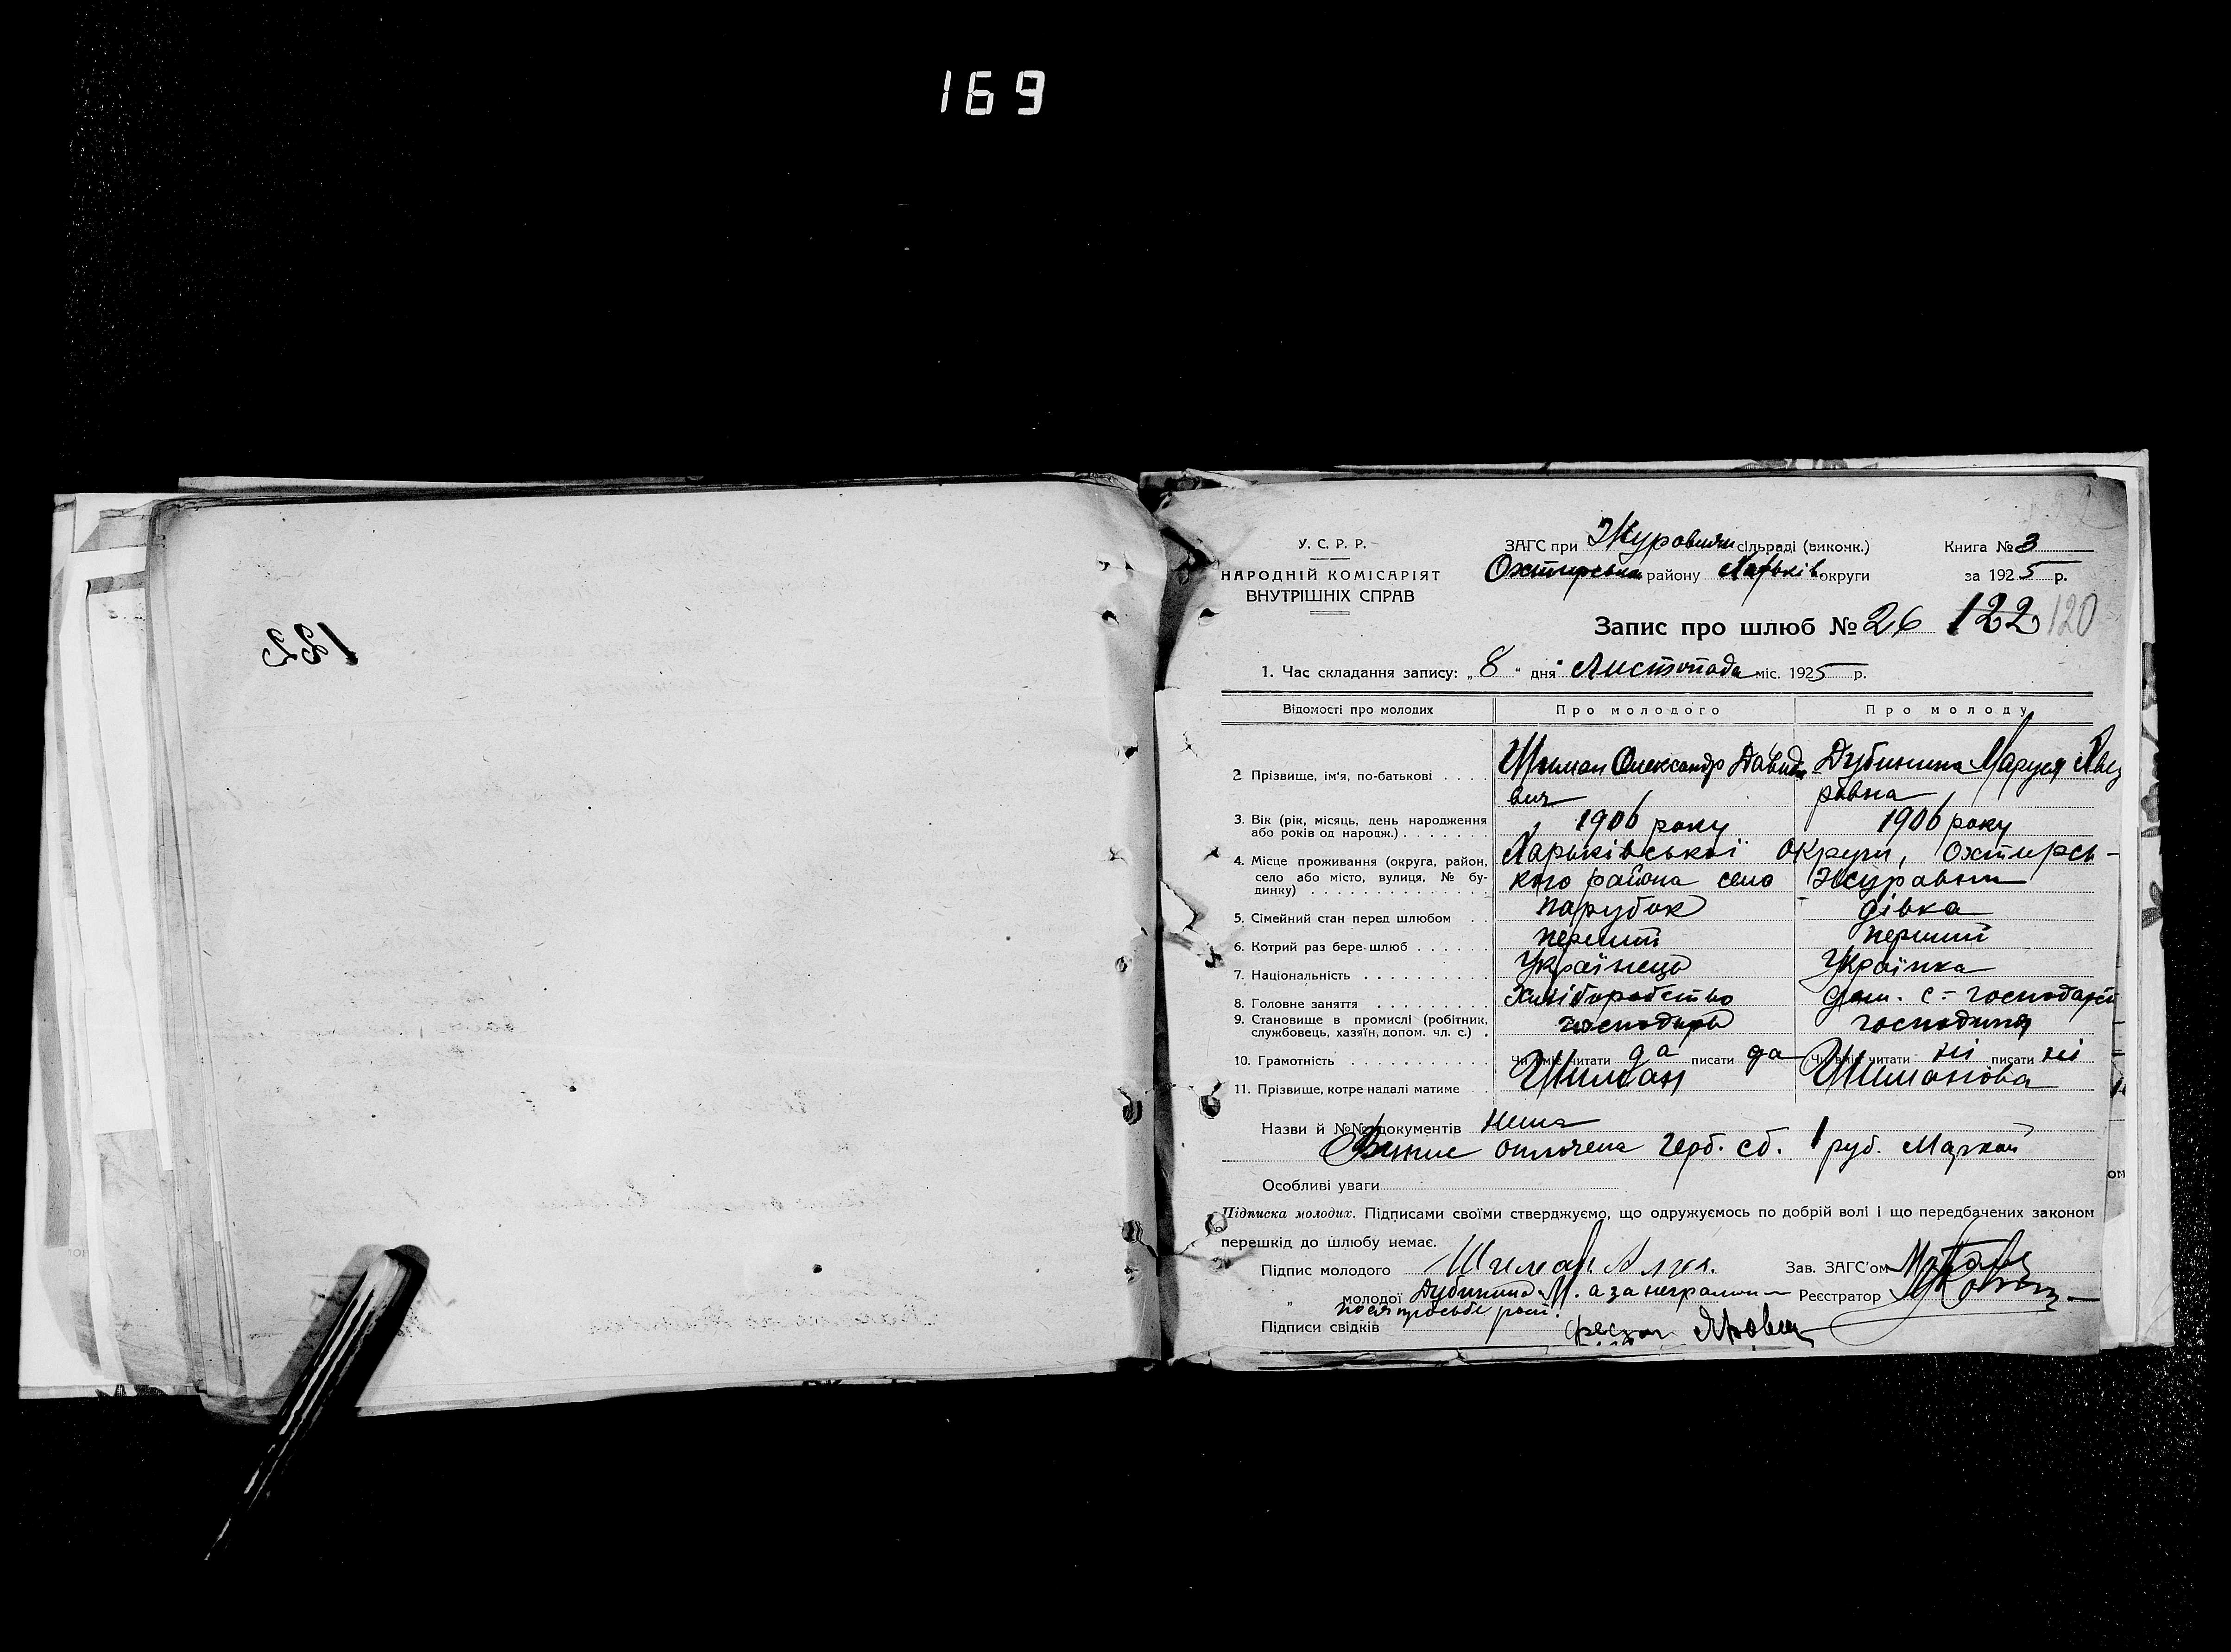 169
У. С. Р. Р.
НАРОДНІЙ КОМІСАРІЯТ
ВНУТРІШНІХ СПРАВ
ЗАГС при сільраді (виконк.)
району Харьків округи
Книга № 3
за 1925 р.
Запис про шлюб № 26 122 120
1. Час складання запису: „8“ дня Листопада міс. 1925 р.
Відомості про молодих Про молодого Про молоду
2 Прізвище, ім'я, по-батькові . . . . Шиман Олександр Давидо Дубинина Маруся
вич ровна
3. Вік (рік, місяць, день народження 1906 року 1906 року
або років од народж.) . . . . . . .
4. Місце проживання (округа, район, Харьківської округи, Охтирсь-
село або місто, вулиця, № бу- кого района село Журавни
динку) . . . . . . . . . . . . . .
5. Сімейний стан перед шлюбом . . парубок дівка
6. Котрий раз бере шлюб . . . . . . перший перший
7. Національність . . . . . . . . . . Українець Українка
8. Головне заняття . . . . . . . . . Хліборобство дом. с-господарст
9. Становище в промислі (робітник, господарь господиня
службовець, хазяїн, допом. чл. с.) .
10. Грамотність . . . . . . . . . . . Чи вміє читати да писати да Чи вміє читати ні писати ні
11. Прізвище, котре надалі матиме Шиман Шиманова
Назви й №№ документів нема
оплочена герб. сб. 1 руб. Маркой
Особливі уваги
Підписка молодих. Підписами своїми стверджуємо, що одружуємось по добрій волі і що передбачених законом
перешкід до шлюбу немає.
Підпис молодого Шиман Зав. ЗАГС'ом
„ молодої Дубинина М. а за неграмотн Реєстратор
просьбе
Підписи свідків